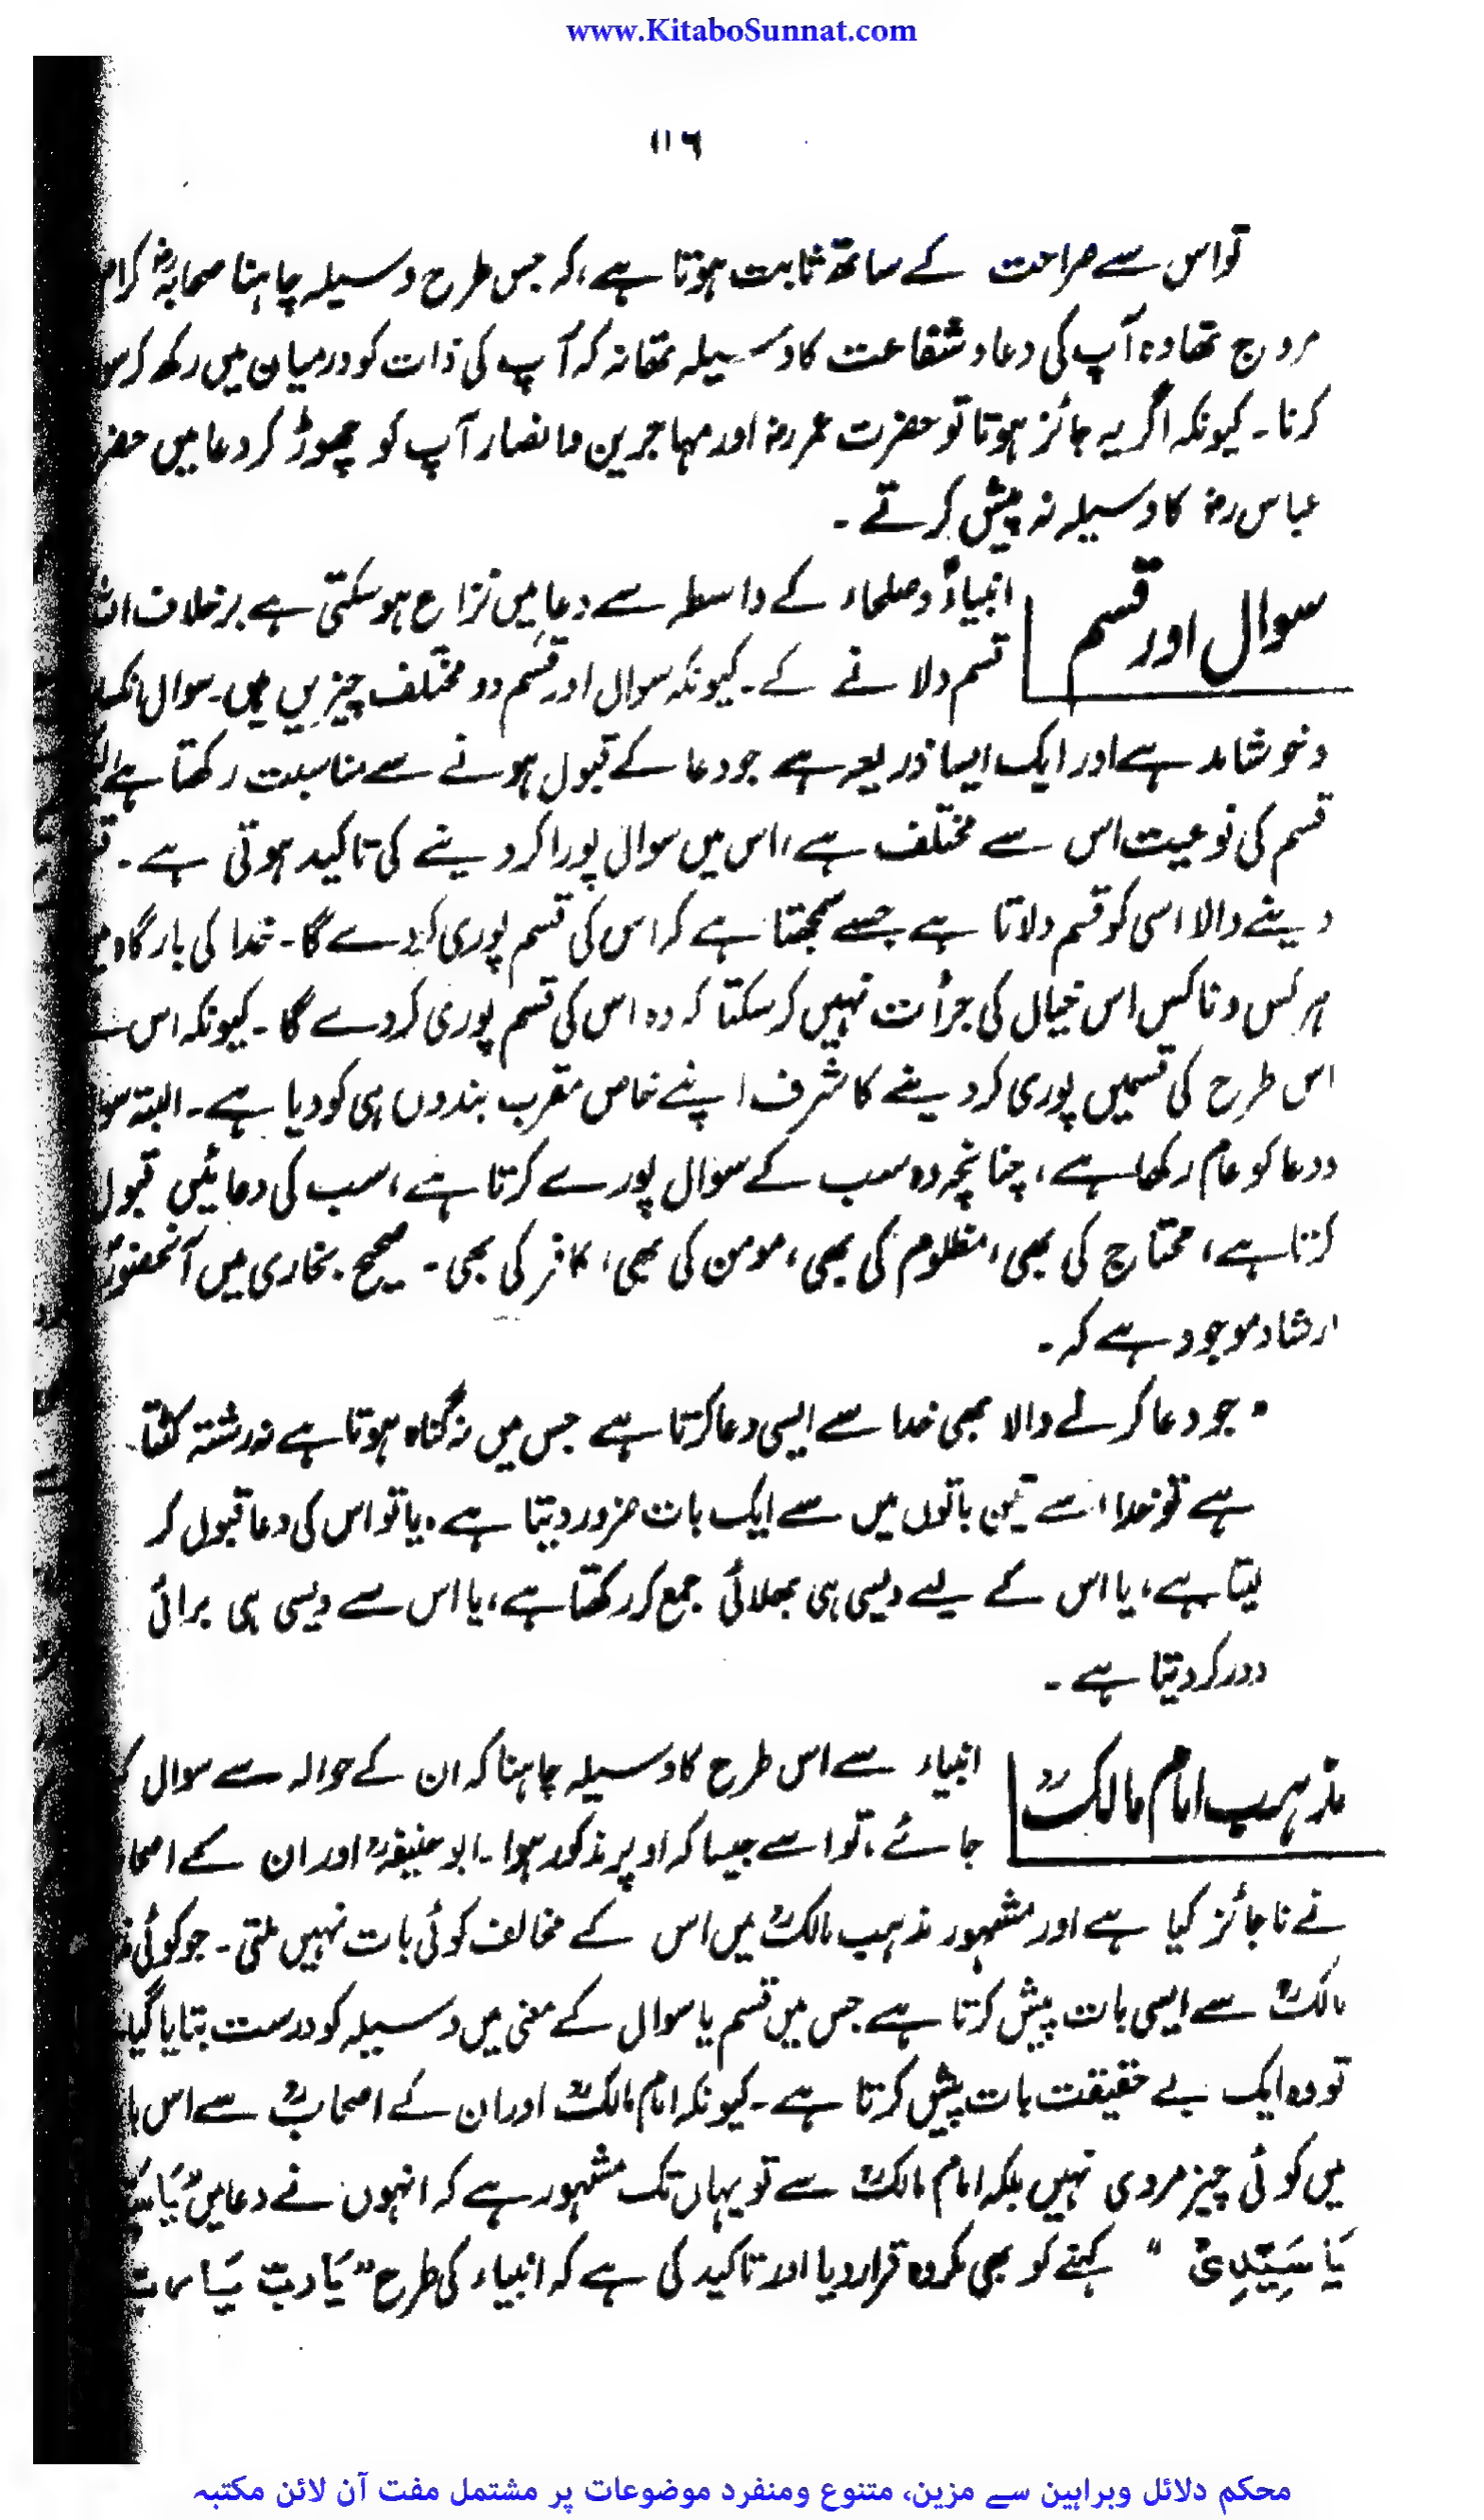 www.KitaboSunnat.com
۱۱۶
تو اس سے صراحت کے ساتھ ثابت ہوتا ہے، کہ جس طرح وسیلہ چاہنا صحابہؓ کرام
مروج تھا وہ آپ کی دعا و شفاعت کا وسیلہ تھا نہ کہ آپ کی ذات کو درمیان میں رکھ کر
کرنا۔ کیونکہ اگر یہ جائز ہوتا تو حضرت عمر رضؓ اور مہاجرین وانصار آپ کو چھوڑ کر دعا میں
عباس رضؓ کا وسیلہ نہ پیش کرتے ۔
سوال اور قسم
انبیاءؑ و صلحاء کے واسطہ سے دعا میں نزاع ہو سکتی ہے برخلاف
قسم دلانے کے۔ کیونکہ سوال اور قسم دو مختلف چیزیں ہیں۔ سوال
وخوشامد ہے اور ایک ایسا ذریعہ ہے جو دعا کے قبول ہونے سے مناسبت رکھتا ہے
قسم کی نوعیت اس سے مختلف ہے، اس میں سوال پورا کر دینے کی تاکید ہوتی ہے ۔
دینے والا اسی کو قسم دلاتا ہے جسے سمجھتا ہے کہ اس کی قسم پوری کر دے گا۔ خدا کی بارگاہ
ہر کس و ناکس اس خیال کی جرأت نہیں کر سکتا کہ وہ اس کی قسم پوری کر دے گا ۔ کیونکہ اس
اس طرح کی قسمیں پوری کر دینے کا شرف اپنے خاص مقرب بندوں ہی کو دیا ہے۔ البتہ
ودعا کو عام رکھا ہے، چنانچہ وہ سب کے سوال پورے کرتا ہے، سب کی دعائیں قبول
کرتا ہے، محتاج کی بھی، مظلوم کی بھی، مومن کی بھی، کافر کی بھی ۔ صحیح بخاری میں آنحضورؐ
ارشاد موجود ہے کہ ۔
" جو دعا کرنے والا بھی خدا سے ایسی دعا کرتا ہے جس میں نہ گناہ ہوتا ہے نہ رشتہ کٹتا
ہے تو خدا اسے تین باتوں میں سے ایک بات ضرور دیتا ہے، یا تو اس کی دعا قبول کر
لیتا ہے، یا اس کے لیے ویسی ہی بھلائی جمع کر رکھتا ہے، یا اس سے ویسی ہی برائی
دور کر دیتا ہے ۔
مذہب امام مالکؒ
انبیاء سے اس طرح کا وسیلہ چاہنا کہ ان کے حوالہ سے سوال
جائے، تو اسے جیسا کہ اوپر مذکور ہوا ۔ ابو حنیفہؒ اور ان کے
نے ناجائز کیا ہے اور مشہور مذہب مالکؒ میں اس کے مخالف کوئی بات نہیں ملتی ۔ جو کوئی
مالکؒ سے ایسی بات پیش کرتا ہے جس میں قسم یا سوال کے معنی میں وسیلہ کو درست بتایا گیا
تو وہ ایک بے حقیقت بات پیش کرتا ہے ۔ کیونکہ امام مالکؒ اور ان کے اصحابؒ سے اس
میں کوئی چیز مروی نہیں بلکہ امام مالکؒ سے تو یہاں تک مشہور ہے کہ انہوں نے دعا میں
یَا سَیِّدِیْ " کہنے کو بھی مکروہ قرار دیا اور تاکید کی ہے کہ انبیاء کی طرح " یَا رَبِّ یَا رَبِّ
محکم دلائل وبراہین سے مزین، متنوع ومنفرد موضوعات پر مشتمل مفت آن لائن مکتبہ